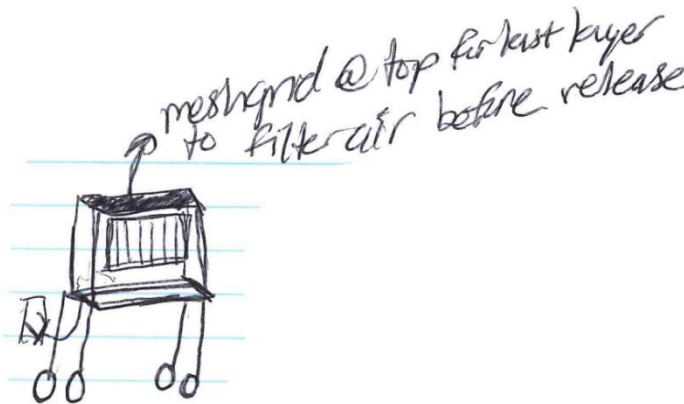 meshgrid @ top for last layer
to filter air before release